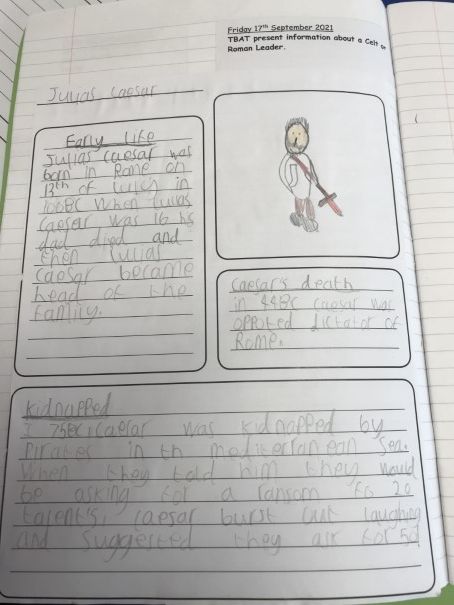 Friday 17th September 2021
TBAT present information about a Celt or
Roman Leader.
Julias Caesar
Early Life
Julias Caesar was
born in Rome on
13th of July in
100BC When Julias
Caesar was 16 his
dad died and
then Julias
Caesar became
head of the
family.
Caesar's death
in 44BC Caesar was
dictator of
Rome.
Kidnapped
I 75BC, Caesar was kidnapped by
Pirates in th Mediterranean Sea.
When they told him they would
be asking for a ransom fo 20
talent's, Caesar burst out laughing
and suggested they ask for 50